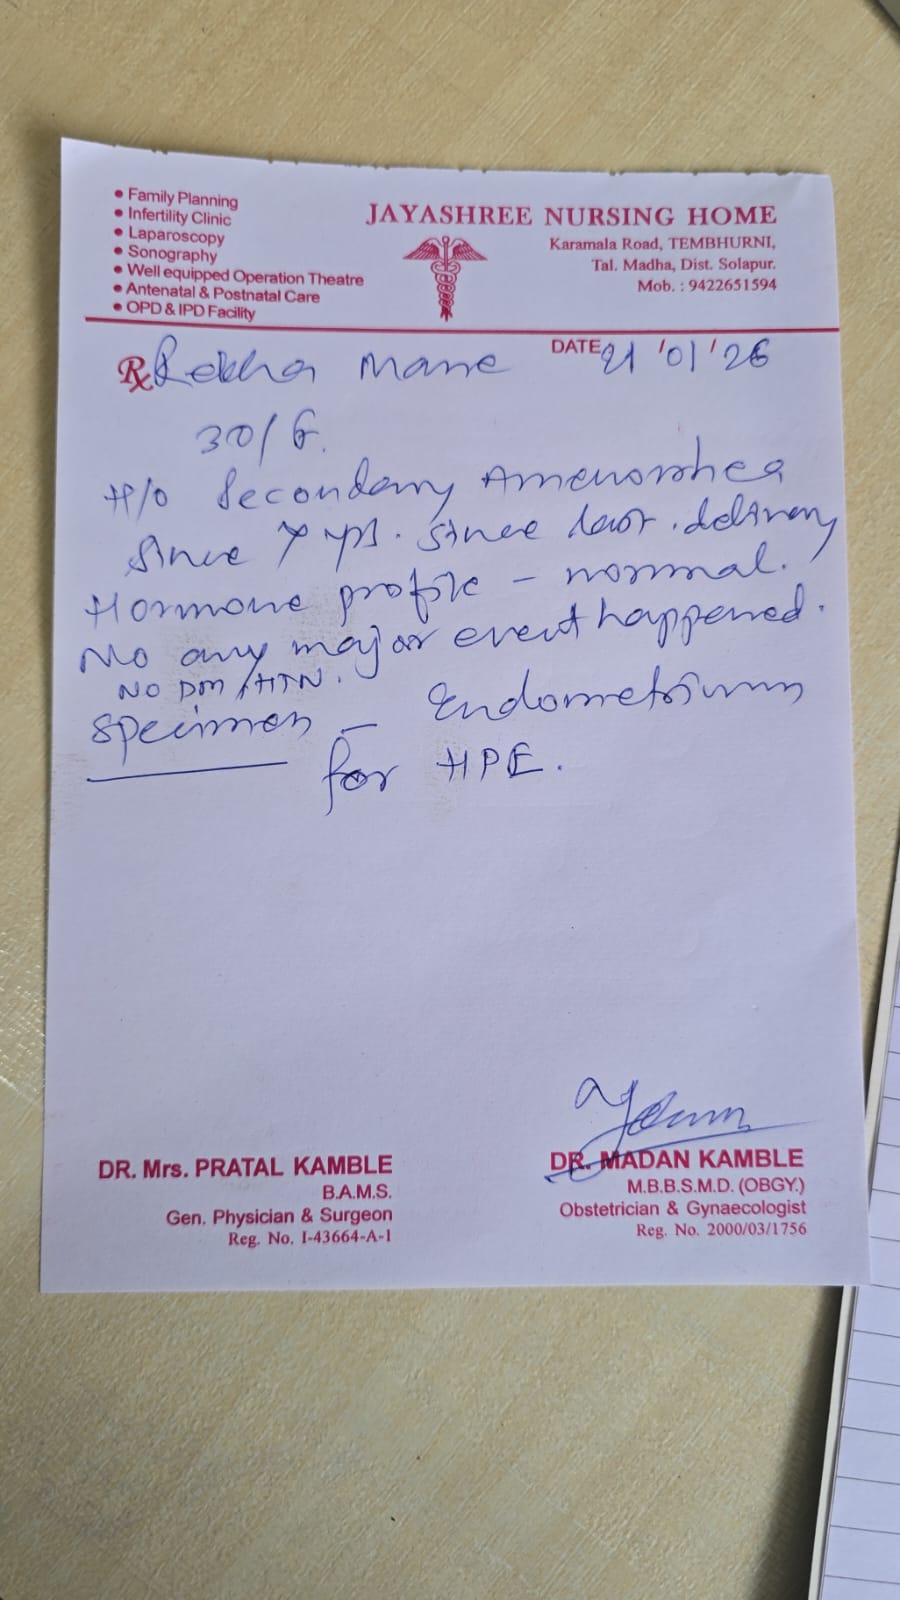 • Family Planning
• Infertility Clinic
• Laparoscopy
• Sonography
• Well equipped Operation Theatre
• Antenatal & Postnatal Care
• OPD & IPD Facility
JAYASHREE NURSING HOME
Karamala Road, TEMBHURNI,
Tal. Madha, Dist. Solapur.
Mob. : 9422651594
DATE 21/01/26
Rx Rekha Mane
30/F.
H/o Secondary Amenorrhea
Since 7 yrs. Since last delivery
Hormone profile - normal.
No any major event happened.
NO DM/HTN.
Specimen - Endometrium
for HPE.
DR. Mrs. PRATAL KAMBLE
B.A.M.S.
Gen. Physician & Surgeon
Reg. No. I-43664-A-1
DR. MADAN KAMBLE
M.B.B.S.M.D. (OBGY.)
Obstetrician & Gynaecologist
Reg. No. 2000/03/1756